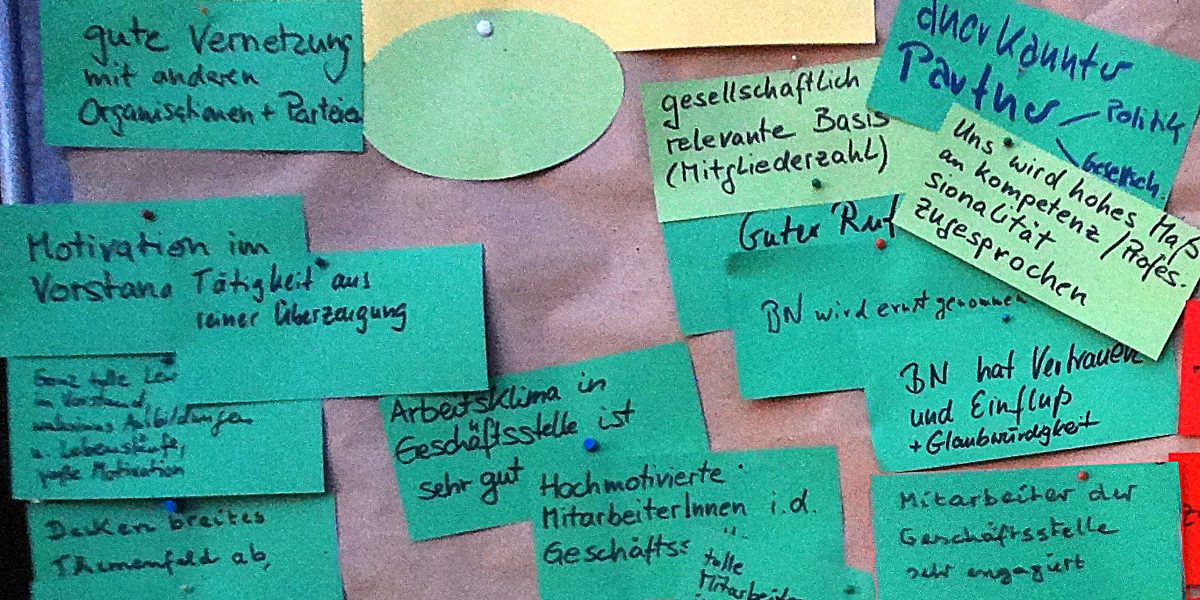 gute Vernetzung
mit anderen
Organisationen + Parteien
gesellschaftlich
relevante Basis
(Mitgliederzahl)
anerkannter
Partner
Politik
Gesellsch.
Uns wird hohes Maß
an Kompetenz / Profes.
sionalität
zugesprochen
Guter Ruf
BN wird ernst genommen
BN hat Vertrauen
und Einfluß
+ Glaubwürdigkeit
Motivation im
Vorstand
Tätigkeit aus
reiner Überzeugung
Ganz tolle
im Vorstand,
Ausbildungen
u. Lebensläufe,
große Motivation
Decken breites
Themenfeld ab,
Arbeitsklima in
Geschäftsstelle ist
sehr gut
Hochmotivierte
MitarbeiterInnen i.d.
Geschäftss
tolle
Mitarbeiter
Mitarbeiter der
Geschäftsstelle
sehr engagiert